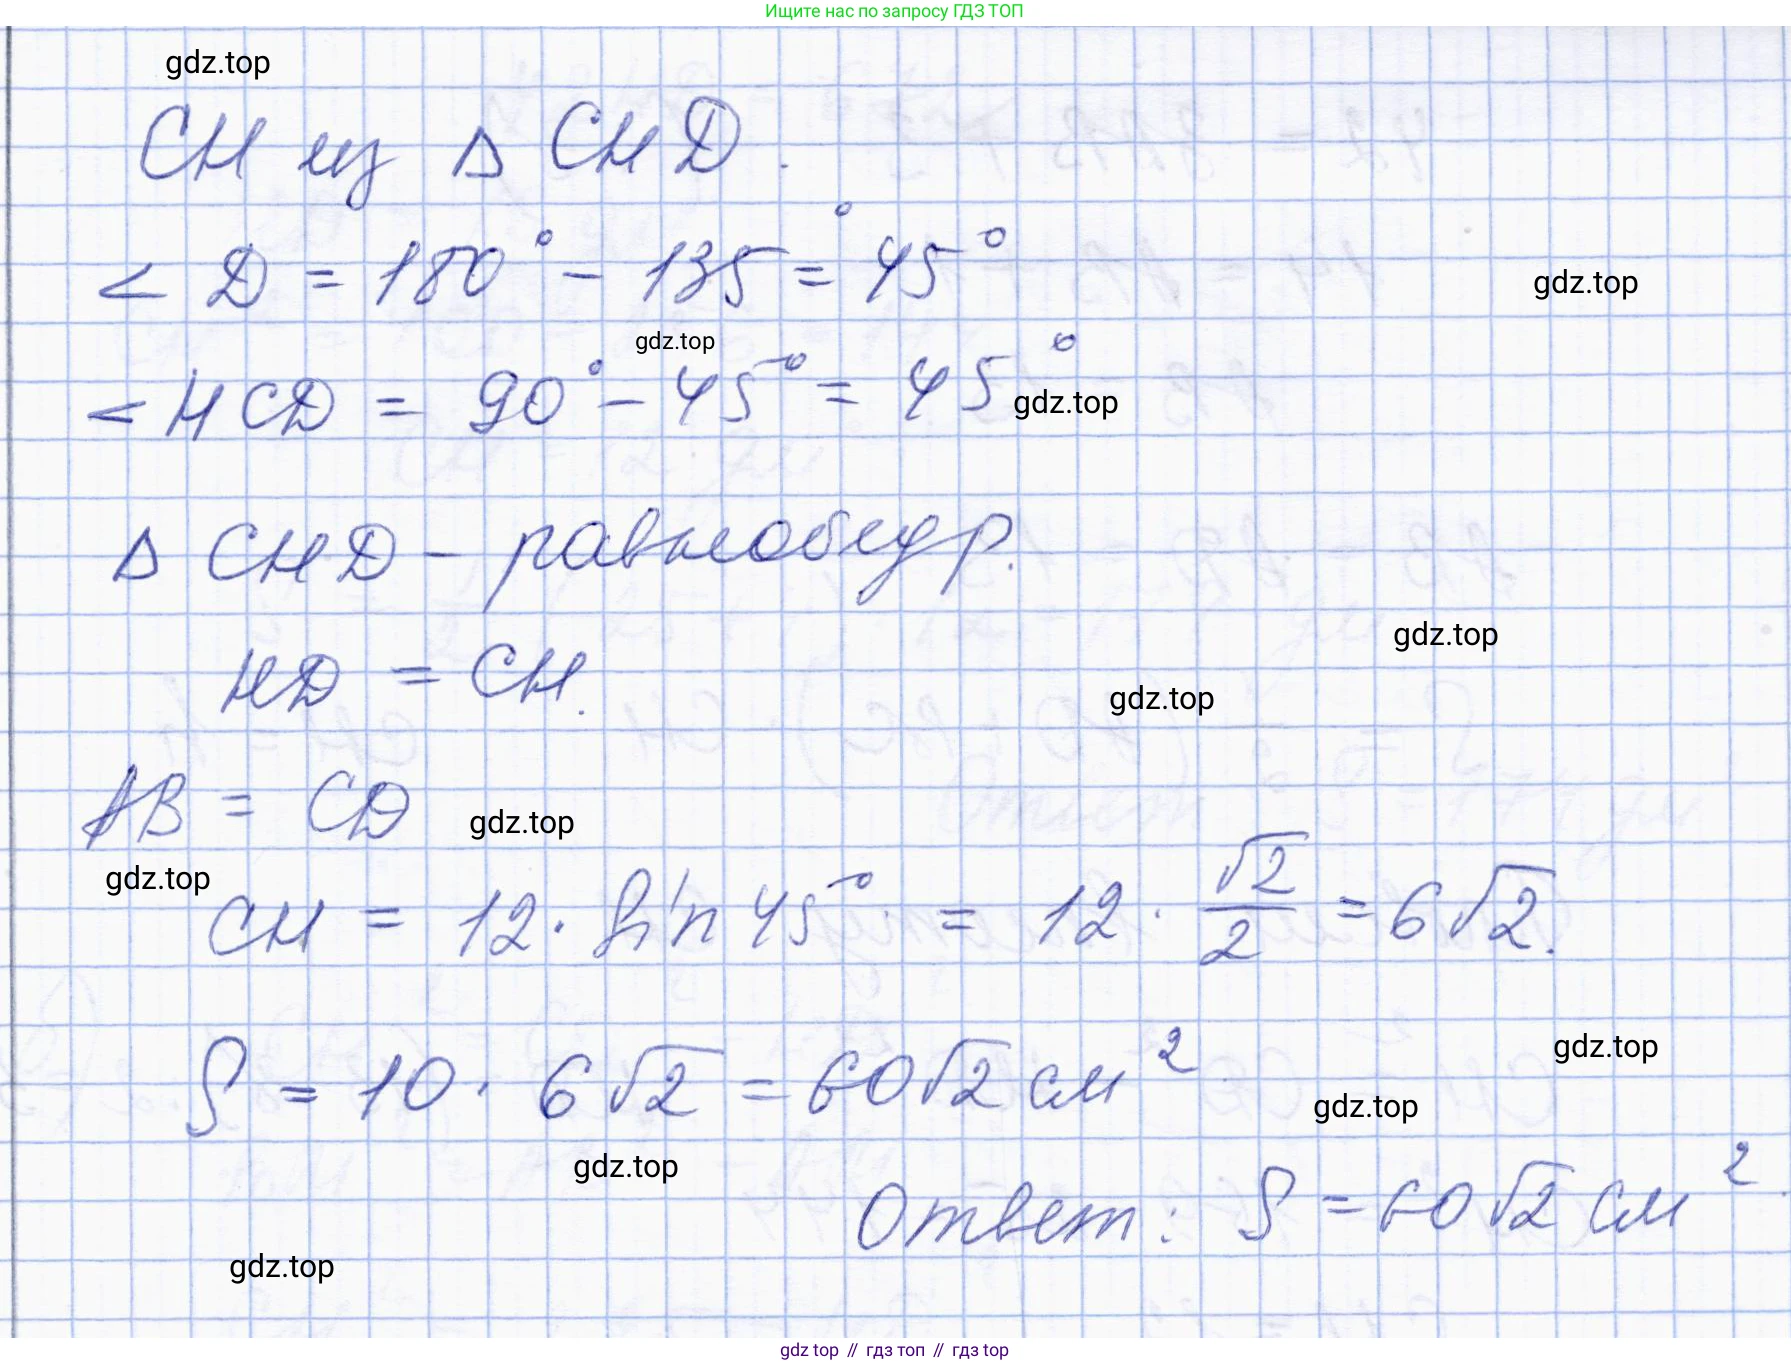 Ищите нас по запросу ГДЗ ТОП
gdz.top
CH из △ CHD.
< D = 180° - 135° = 45°
gdz.top
gdz.top
< HCD = 90° - 45° = 45°
gdz.top
△ CHD - равнобедр.
gdz.top
HD = CH.
gdz.top
AB = CD
gdz.top
gdz.top
CH = 12 · sin 45° = 12 · √2/2 = 6√2.
S = 10 · 6√2 = 60√2 см²
gdz.top
gdz.top
gdz.top
Ответ: S = 60√2 см²
gdz.top
gdz.top // гдз топ // гдз top